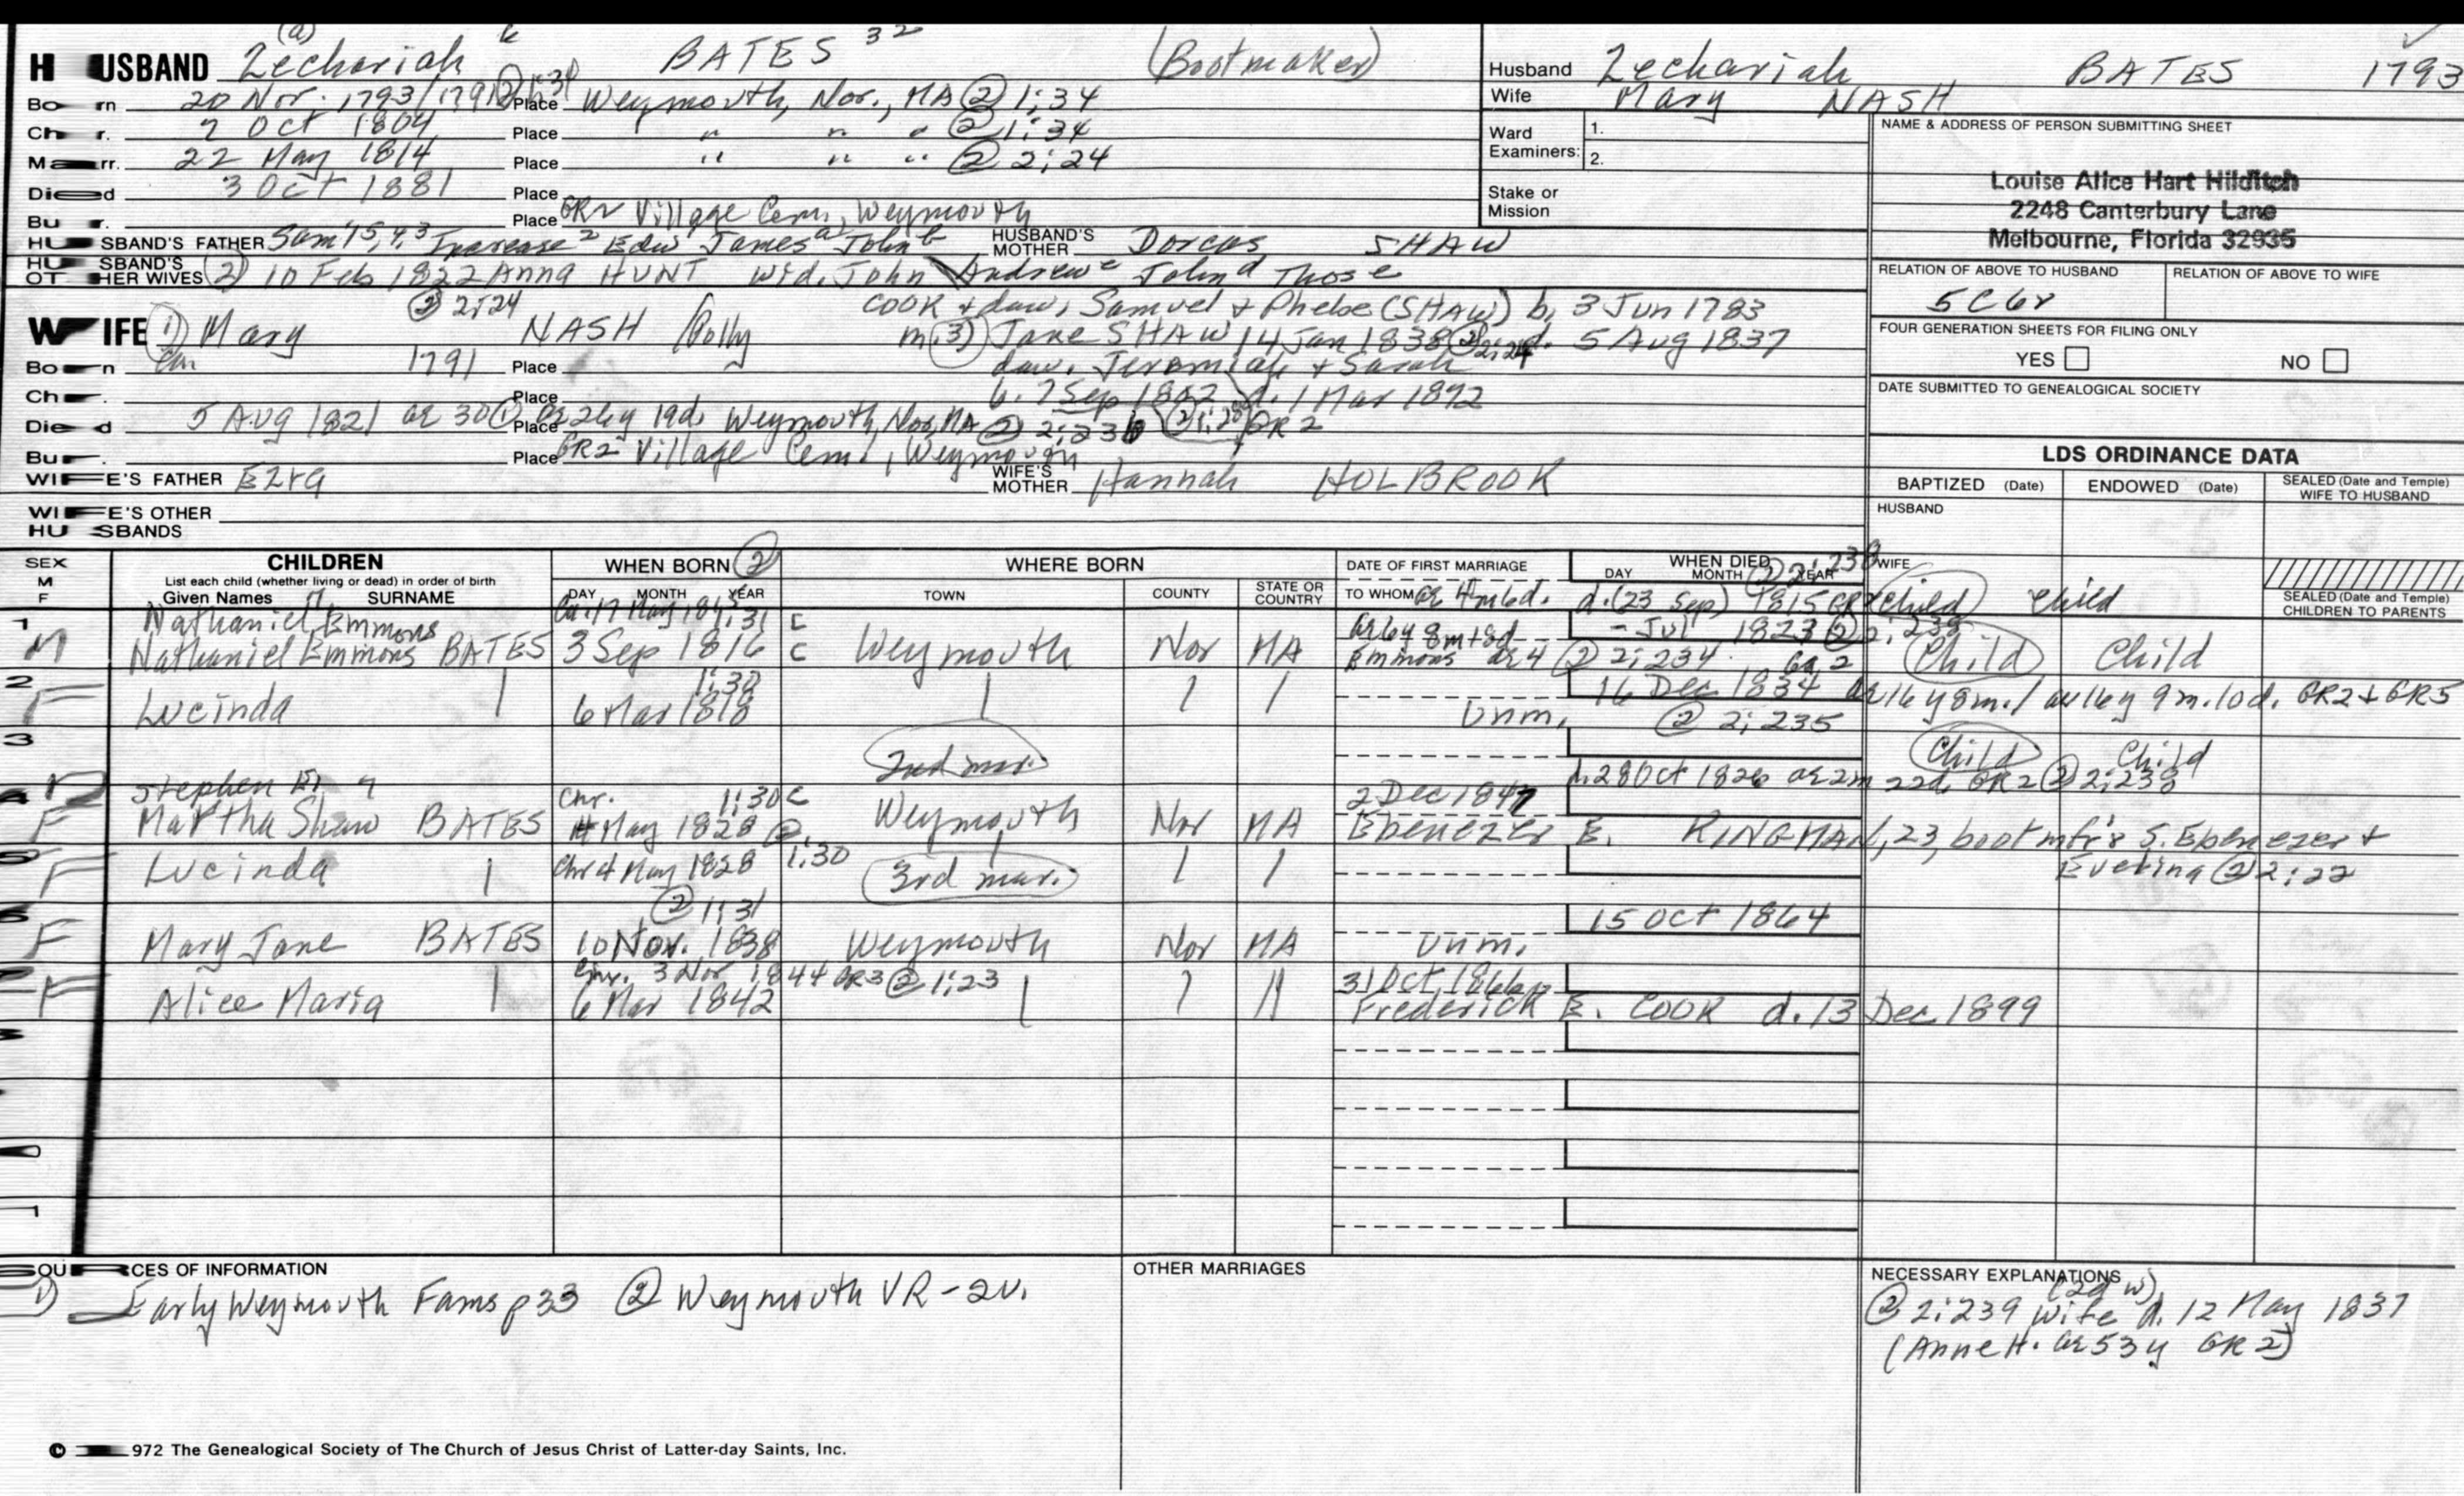 HUSBAND Zechariah BATES 32 (Bootmaker)
(a)
Born 20 Nov. 1793/1791 Place Weymouth, Nor., MA ② 1:34
Chr. 7 Oct 1804 Place " " " ② 1:34
Marr. 22 May 1814 Place " " " ② 2:24
Died 3 Oct 1881 Place
Bur. Place GR2 Village Cem., Weymouth
HUSBAND'S FATHER Sam'l 5, 4, 3 Increase 2 Edw James a John b HUSBAND'S MOTHER Dorcas SHAW
HUSBAND'S OTHER WIVES (2) 10 Feb 1822 Anna HUNT wid. John Andrew c John d Thos e
② 2:24 COOK + dau. Samuel & Phebe (SHAW) b. 3 Jun 1783
WIFE (1) Mary NASH Polly m (3) Jane SHAW 14 Jan 1838 ② 2:24 d. 5 Aug 1837
Born 1791 Place dau. Jeremiah & Sarah
Chr. Place b. 7 Sep d. 1 Mar 1892
Died 5 Aug 1821 ae 30 ① ae 26y 19d. Place Weymouth, Nor, MA ② 2:238 ② 1:28 GR2
Bur. Place GR2 Village Cem., Weymouth
WIFE'S FATHER Ezra WIFE'S MOTHER Hannah HOLBROOK
WIFE'S OTHER HUSBANDS
Husband Zechariah BATES 1793
Wife Mary NASH
Ward Examiners: 1.
2.
Stake or Mission
NAME & ADDRESS OF PERSON SUBMITTING SHEET
Louise Alice Hart Hilditch
2248 Canterbury Lane
Melbourne, Florida 32935
RELATION OF ABOVE TO HUSBAND RELATION OF ABOVE TO WIFE
5C6r
FOUR GENERATION SHEETS FOR FILING ONLY
YES NO
DATE SUBMITTED TO GENEALOGICAL SOCIETY
LDS ORDINANCE DATA
BAPTIZED (Date) ENDOWED (Date) SEALED (Date and Temple) WIFE TO HUSBAND
HUSBAND
WIFE
SEALED (Date and Temple) CHILDREN TO PARENTS
SEX M F CHILDREN WHEN BORN ② WHERE BORN DATE OF FIRST MARRIAGE WHEN DIED ② 2:238
List each child (whether living or dead) in order of birth
Given Names SURNAME DAY MONTH YEAR TOWN COUNTY STATE OR COUNTRY TO WHOM DAY MONTH YEAR
Nathaniel Emmons 17 May 1:31 C ae 4m 6d. d. (23 Sep) 1815 GR2 Child Child
1 M Nathaniel Emmons BATES 3 Sep 1816 C Weymouth Nor MA ae 6y 8m + 8d - Jul 1823 ② 2:238 Child Child
Emmons ae 4 ② 2:234. GR2
2 F Lucinda 1:30 6 Mar 1818 Unm. 16 Dec 1834 ae 16y 8m./ ae 16y 9m. 10d. GR2 + GR5
② 2:235
3 2nd mar. Child Child
Stephen d. 28 Oct 1826 ae 2m 22d. GR2 ② 2:238
4 F Martha Shaw BATES Chr. 1:30 C 4 May 1828 ② Weymouth Nor MA 2 Dec 1847 Ebenezer E. KINGMAN, 23, boot mfr's s. Ebenezer +
Evelina ② 2:22
5 F Lucinda Chr 4 May 1828 1:30 3rd mar.
② 1:31
6 F Mary Jane BATES 10 Nov. 1838 Weymouth Nor MA Unm. 15 Oct 1864
F Alice Maria Chr. 3 Nov 1844 GR3 ② 1:23
6 Mar 1842 31 Oct 1866 Frederick E. COOK d. 13 Dec 1899
SOURCES OF INFORMATION
1) Early Weymouth Fams p 33 ② Weymouth VR - 2v.
OTHER MARRIAGES
NECESSARY EXPLANATIONS
(2d w)
② 2:239 wife d. 12 May 1837
(Anne H. ae 53y GR2)
© 972 The Genealogical Society of The Church of Jesus Christ of Latter-day Saints, Inc.